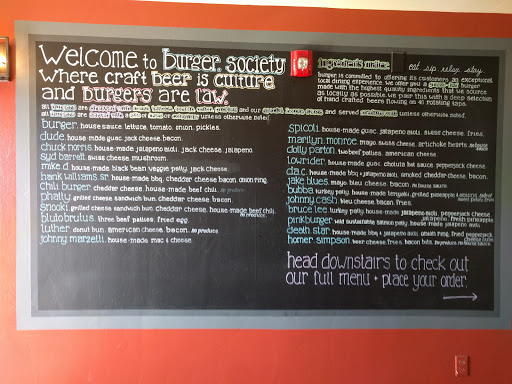 Welcome to burger society
where craft beer is culture
and burgers are law.
all burgers are dressed with
and our
and served
unless otherwise noted.
unless otherwise noted.
burger. house sauce. lettuce. tomato. onion. pickles.
dude. house-made guac. jack cheese. bacon.
chuck norris. house-made jalapeno aioli. jack cheese. jalapeno.
syd barrett. swiss cheese. mushroom.
mike d. house-made black bean veggie patty. jack cheese.
hank williams, sr. house-made bbq. cheddar cheese. bacon. onion ring.
chili burger. cheddar cheese. house-made beef chili. no produce
phatty. grilled cheese sandwich bun. cheddar cheese. bacon.
snooki. grilled cheese sandwich bun. cheddar cheese. house-made beef chili. no produce
pluto brutus. three beef patties. fried egg.
luther. donut bun. american cheese. bacon. no produce
johnny marzetti. house-made mac & cheese.
ingredients matter. eat. sip. relax. stay.
burger. is committed to offering its customers an exceptional
local dining experience. we offer you a burger
made with the highest quality ingredients that we source
as locally as possible. we pair this with a deep selection
of hand crafted beers flowing on 40 rotating taps.
spicoli. house-made guac. jalapeno aioli. swiss cheese. fries.
marilyn monroe. mayo. swiss cheese. artichoke hearts. no house sauce
dolly parton. two beef patties. american cheese.
lowrider. house-made guac. cholula bleu sauce. pepperjack cheese.
d.a.c. house-made bbq & jalapeno aioli. smoked cheddar cheese. bacon.
jake blues. mayo. bleu cheese. bacon. no house sauce
bubba. turkey patty. house-made teriyaki. grilled pineapple & onions. side of sweet potato fries
johnny cash. bleu cheese. bacon. fries.
bruce lee. turkey patty. house-made jalapeno aioli. pepperjack cheese.
jalapeno. fresh pineapple
pinkburger. wild sustainable salmon patty. house-made jalapeno aioli.
death star. house-made bbq & jalapeno aioli. onion ring. fried pepperjack
cheese cube
homer simpson. beer cheese. fries. bacon bits. no produce no house sauce
head downstairs to check out
our full menu + place your order.